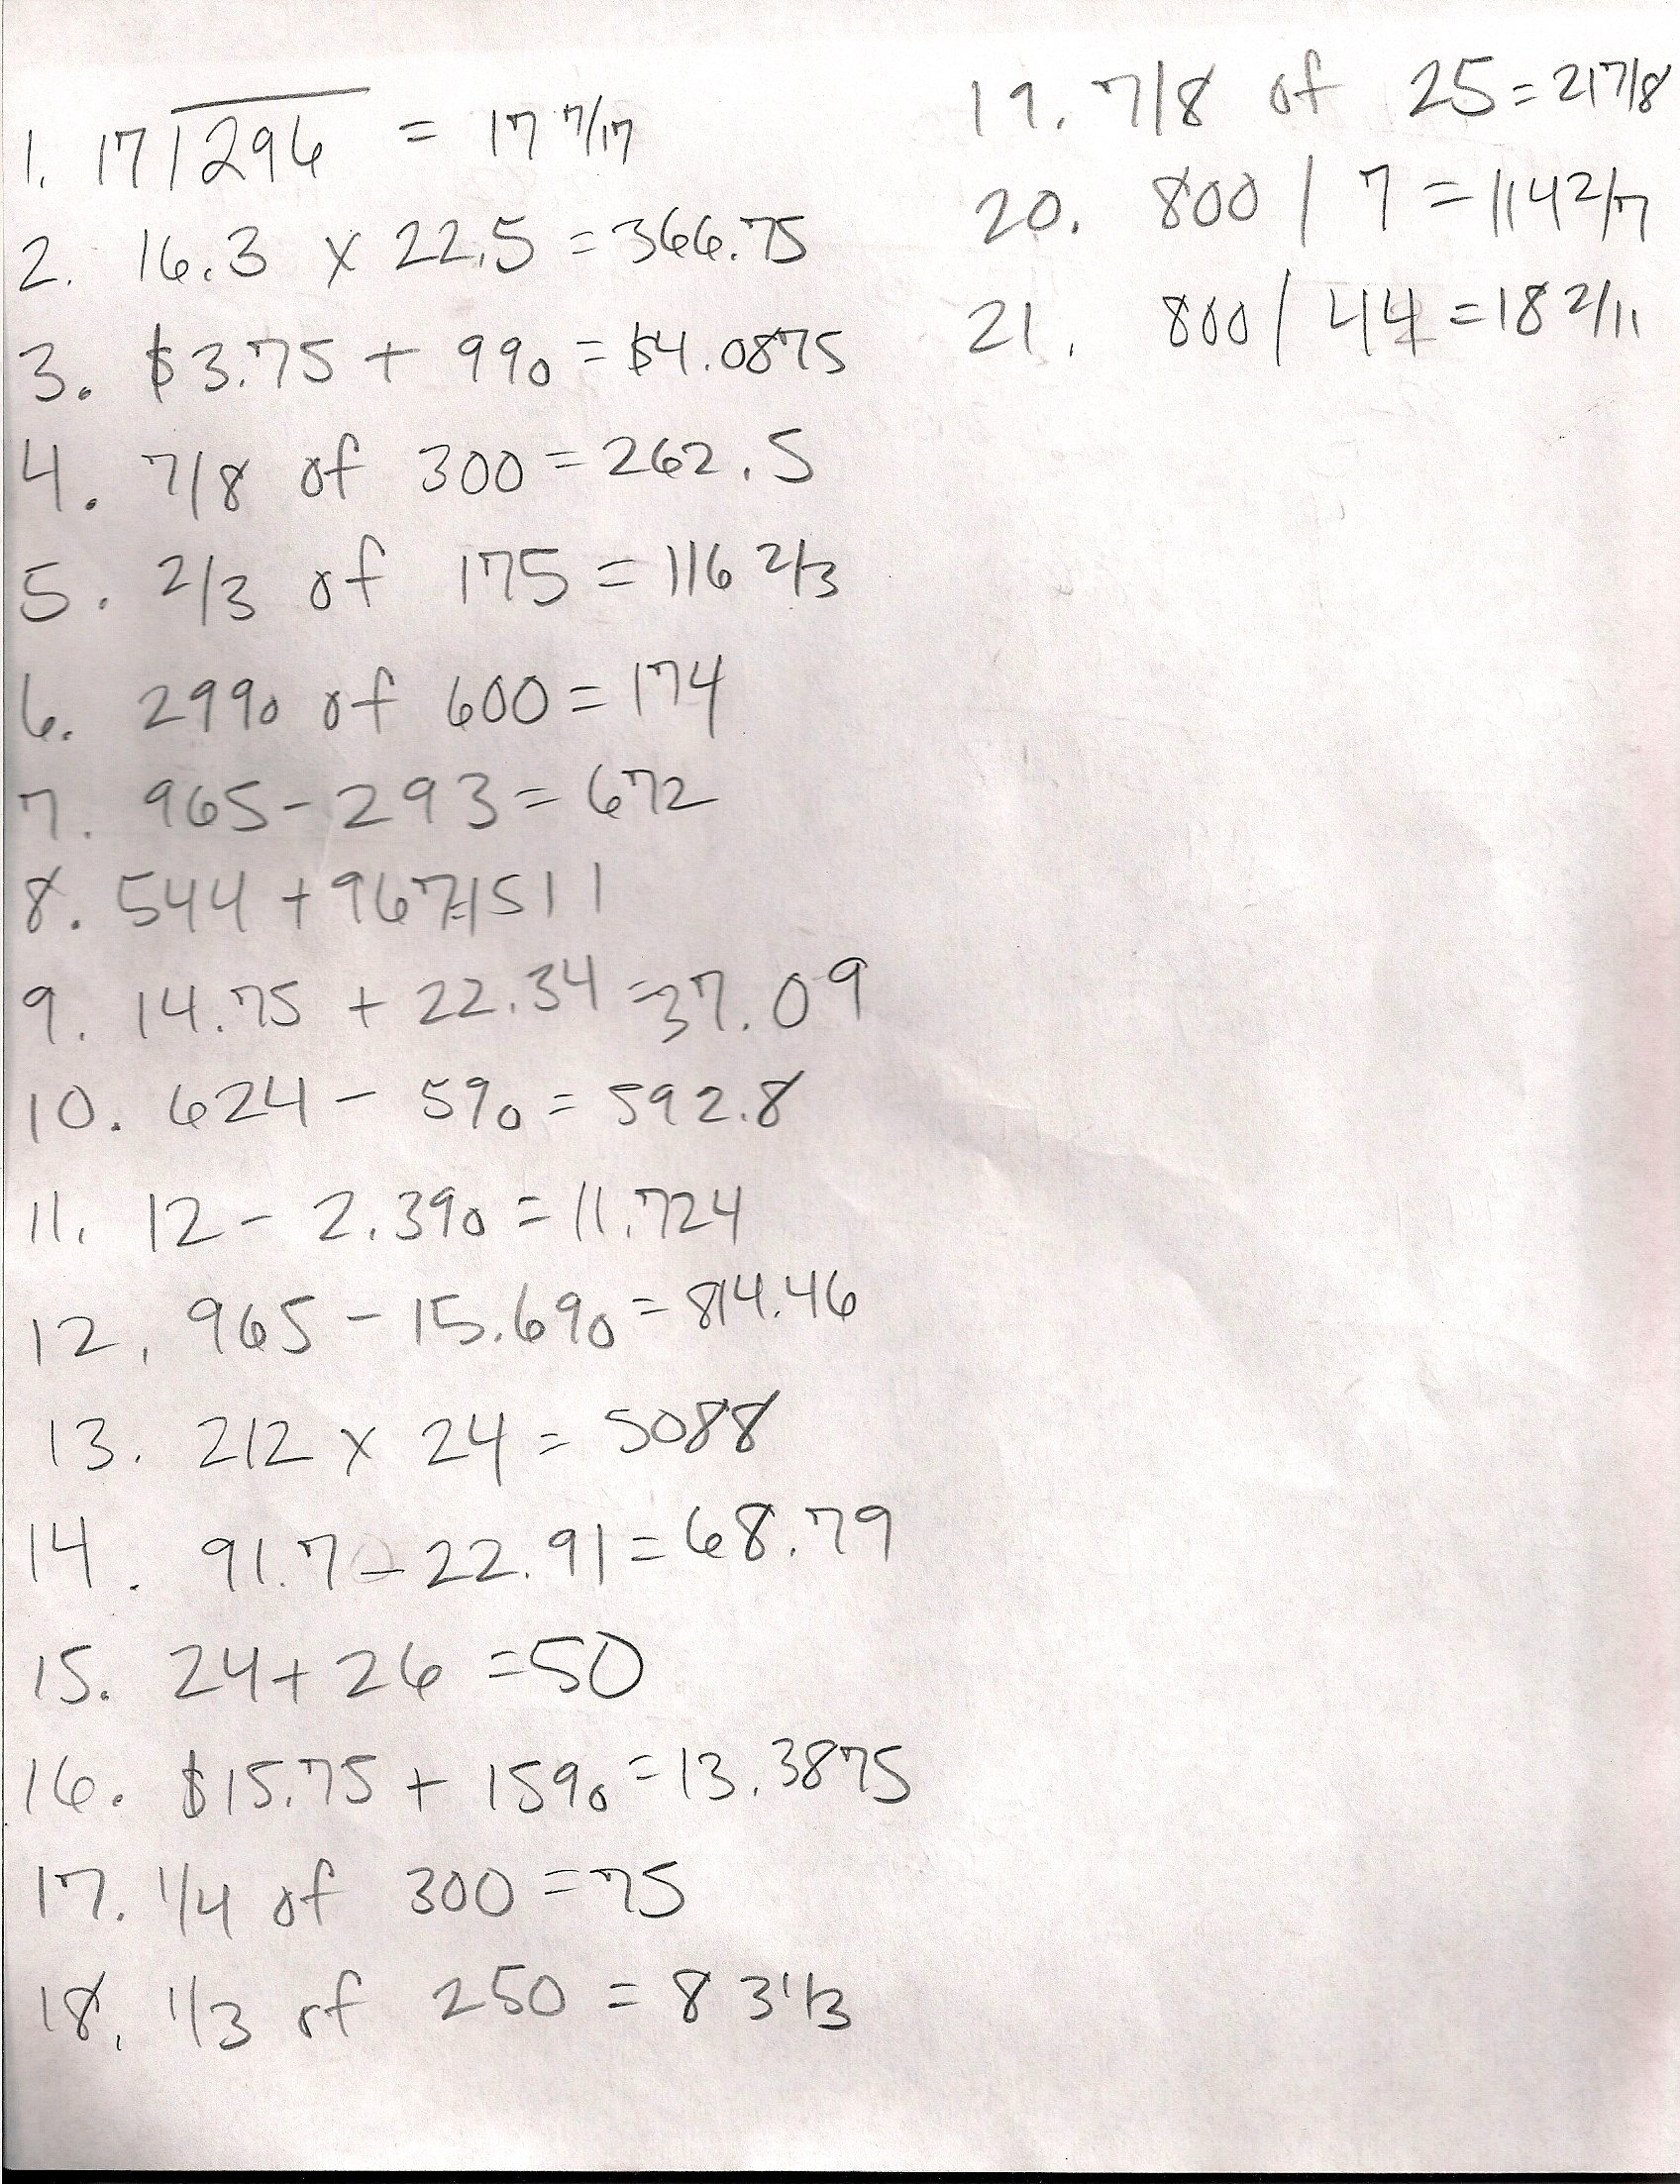 1. 17⟌296 = 17 7/17
2. 16.3 x 22.5 = 366.75
3. $3.75 + 9% = $4.0875
4. 7/8 of 300 = 262.5
5. 2/3 of 175 = 116 2/3
6. 29% of 600 = 174
7. 965 - 293 = 672
8. 544 + 967=1511
9. 14.75 + 22.34 =37.09
10. 624 - 5% = 592.8
11. 12 - 2.3% = 11.724
12. 965 - 15.6% = 814.46
13. 212 x 24 = 5088
14. 91.7 - 22.91 = 68.79
15. 24 + 26 = 50
16. $15.75 + 15% = 13.3875
17. 1/4 of 300 = 75
18. 1/3 of 250 = 83 1/3
19. 7/8 of 25 = 21 7/8
20. 800 / 7 = 114 2/7
21. 800 / 44 = 18 2/11